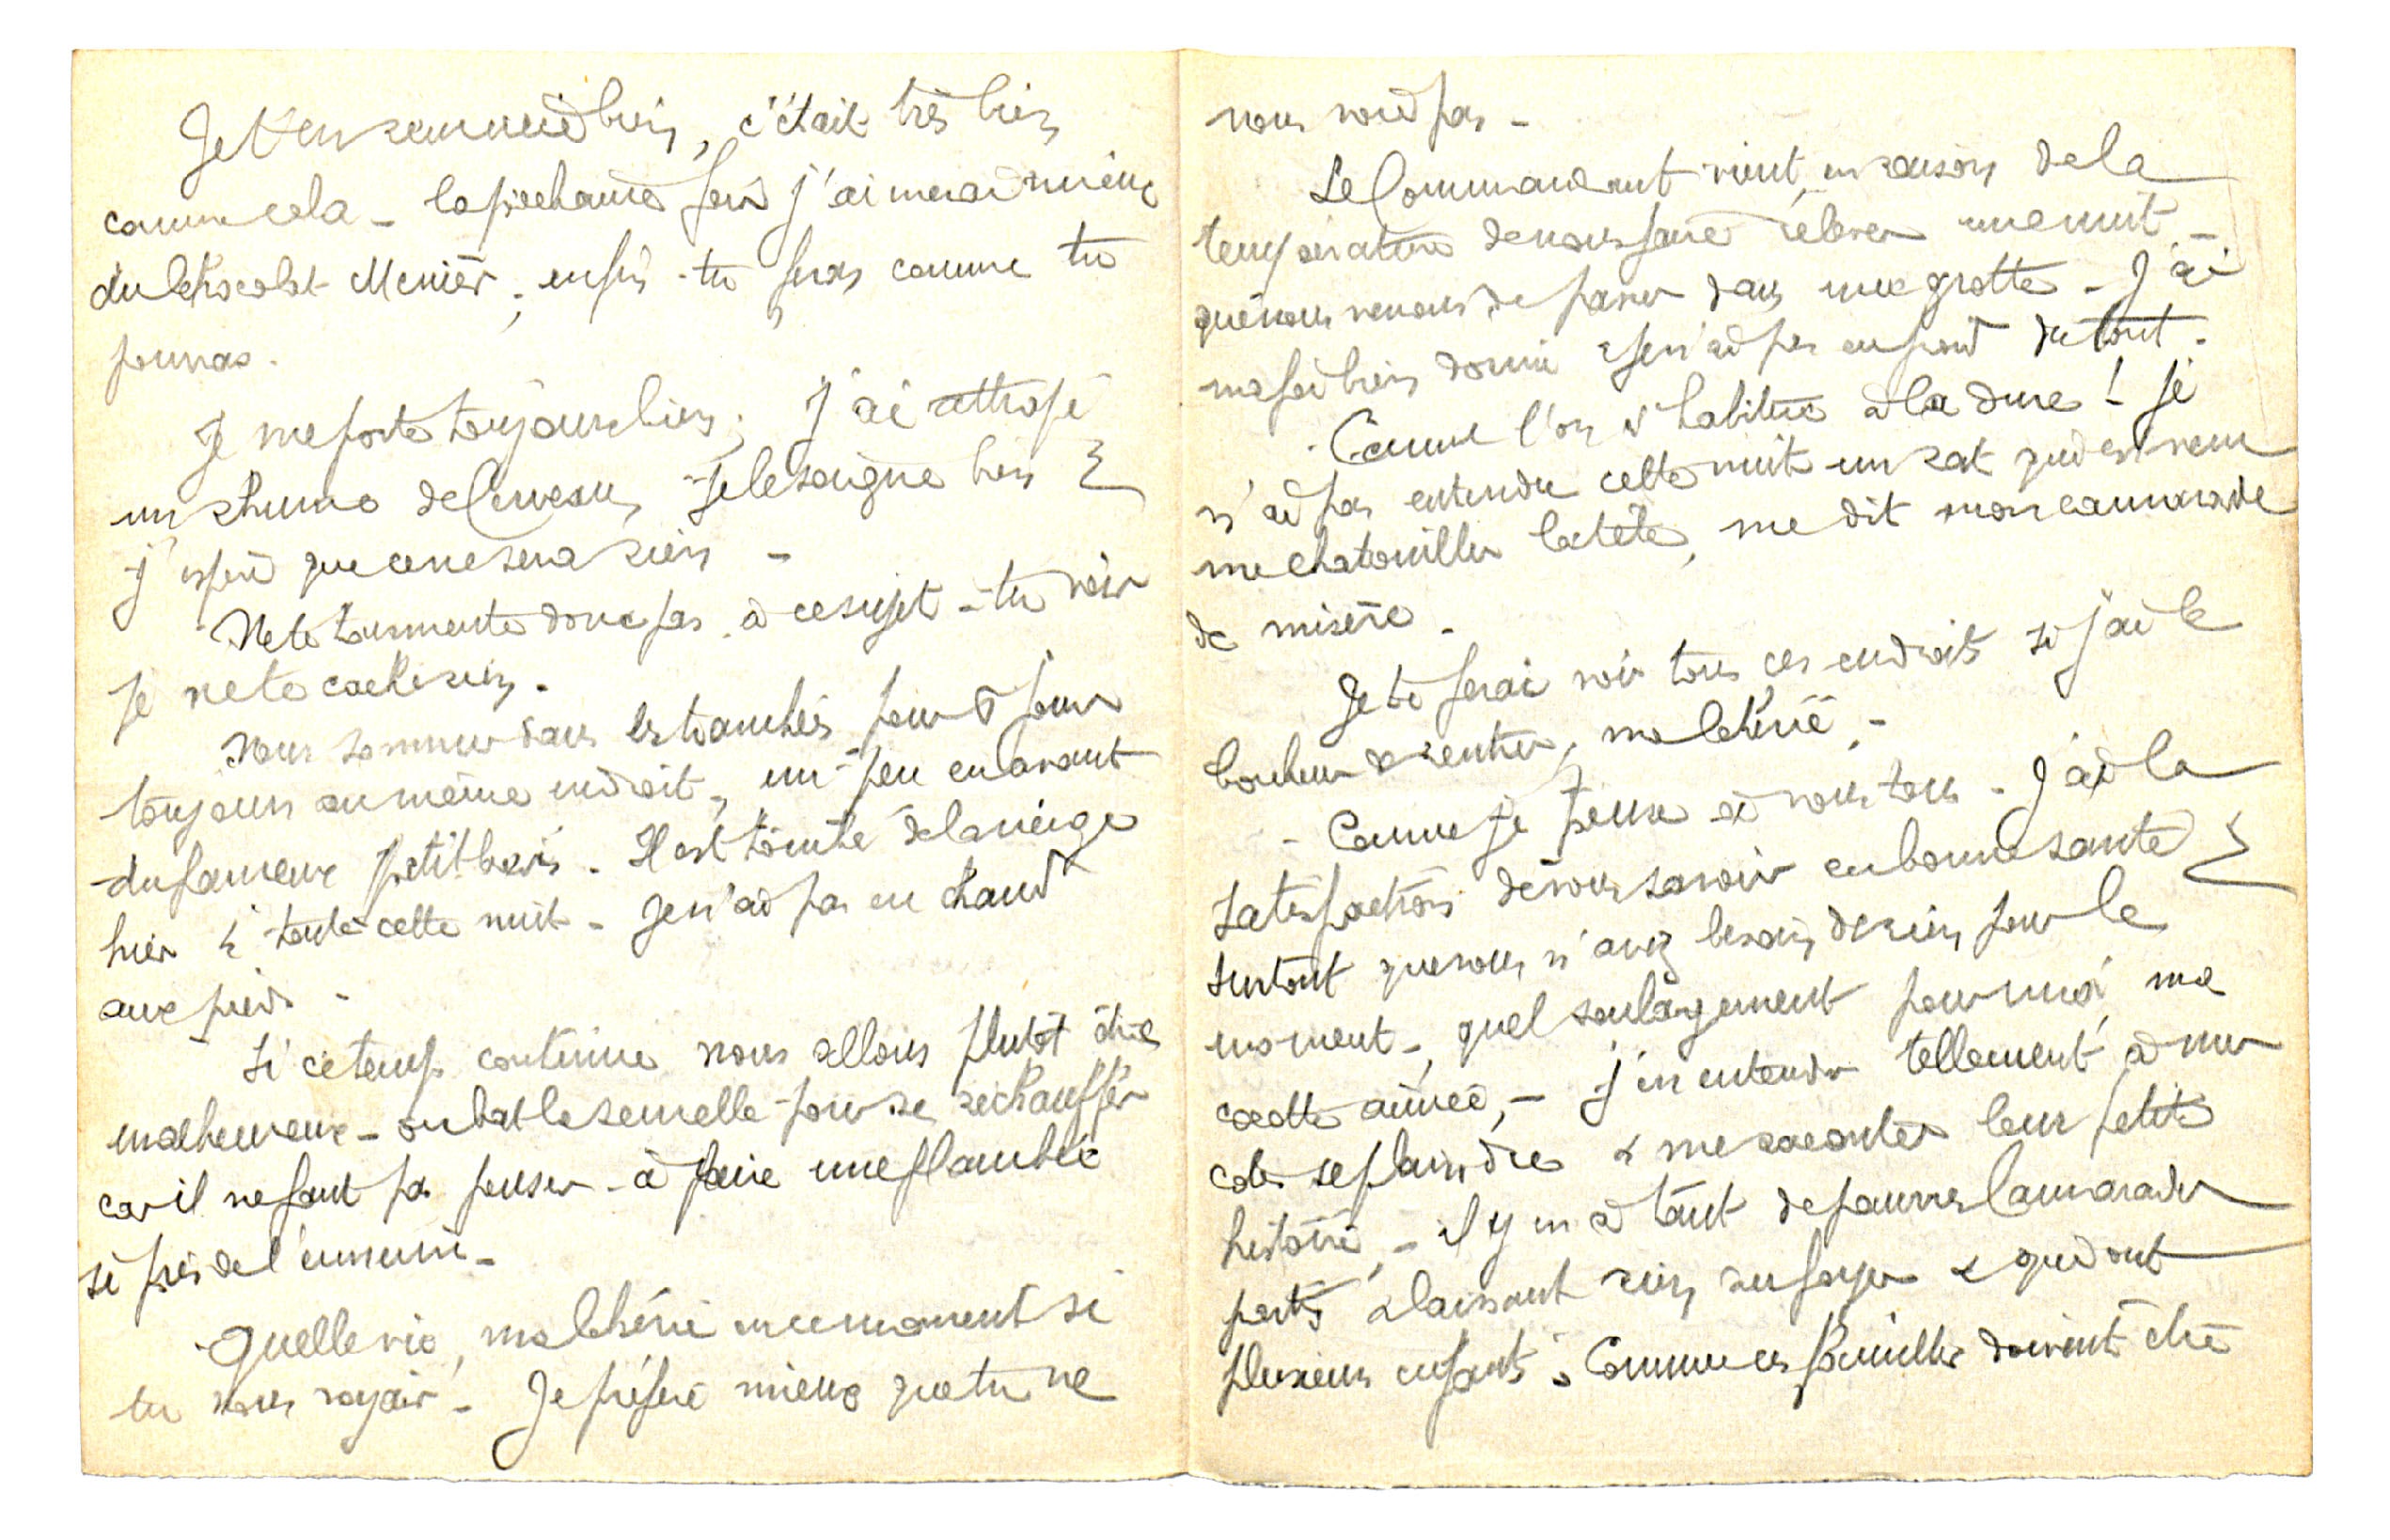 Je t'en remercie bien, c'était très bien
comme cela - la prochaine fois j'aimerai mieux
du Chocolat Menier, enfin tu feras comme tu
pourras.
Je me porte toujours bien, j'ai attrapé
un rhume de Cerveau, je le soigne bien &
j'espère que ce ne sera rien -
Ne te tourmente donc pas à ce sujet - tu vois
je ne te cache rien.
Nous sommes dans les tranchées pour 8 jours
toujours au même endroit, un peu en avant
du fameux petit bois. Il est tombé de la neige
hier & toute cette nuit - Je n'ai pas eu chaud
aux pieds -
Si ce temps continue nous allons plutôt être
malheureux - on bat la semelle pour se réchauffer
car il ne faut pas penser à faire une flambée
si près de l'ennemi -
Quelle vie, ma Chérie en ce moment si
tu nous voyais - Je préfère mieux que tu ne
nous vois pas -
Le Commandant vient, en raison de la
température de nous faire relever une nuit -
que nous venons de passer dans une grotte - J'ai
ma foi bien dormi & je n'ai pas eu froid du tout.
- Comme l'on s'habitue à la dure ! Je
n'ai pas entendu cette nuit un rat qui est venu
me chatouiller la tête, me dit mon camarade
de misère -
Je te ferai voir tous ces endroits si j'ai le
bonheur de rentrer, ma Chérie, -
- Comme je pense à vous tous - J'ai la
satisfaction de vous savoir en bonne santé &
surtout que vous n'avez besoin de rien pour le
moment -, quel soulagement pour moi, ma
cocotte aimée, - j'en entends tellement à mes
côtés se plaindre & me raconter leur petite
histoire, - il y en a tant de pauvres Camarades
partis & laissant rien au foyer & qui ont
plusieurs enfants. Comme ces familles doivent être